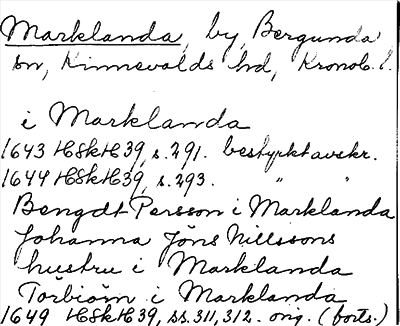 Marklanda, by, Bergunda
sn, Kinnevalds hd, Kronob. l.
i Marklanda
1643 HSkH 39, s. 291. bestyrkt avskr.
1644 HSkH 39, s. 293. " "
Bengdt Persson i Marklanda
Johanna Jöns Nillssons
hustru i Marklanda
Törbiörn i Marklanda
1649 HSkH 39, ss. 311, 312. orig. (forts.)